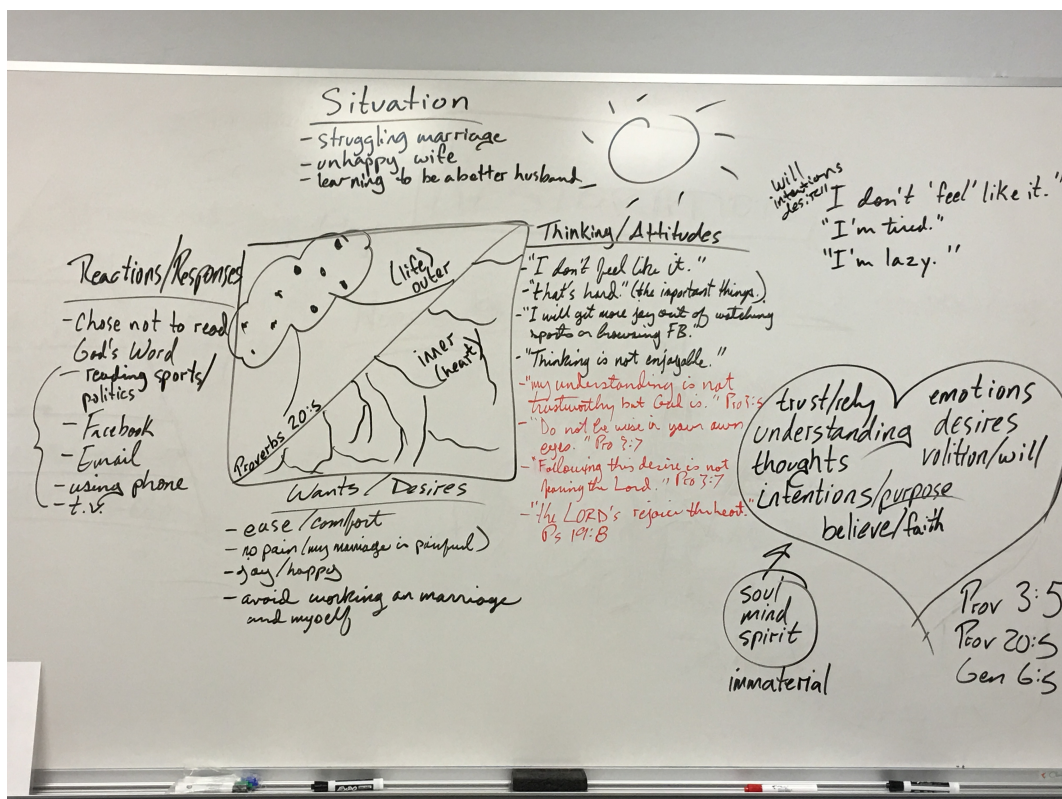 Situation
- struggling marriage
- unhappy wife
- learning to be a better husband
will
intentions
desires
"I don't 'feel' like it."
"I'm tired."
"I'm lazy."
Reactions/Responses
- Chose not to read
God's Word
- reading sports/
politics
- Facebook
- Email
- using phone
- t.v.
(life)
outer
inner
(heart)
Proverbs 20:5
Thinking/Attitudes
- "I don't feel like it."
- "that's hard." (the important things.)
- "I will get more joy out of watching
sports or browsing FB."
- "Thinking is not enjoyable."
- "my understanding is not
trustworthy but God is." Pro 3:5
- "Do not be wise in your own
eyes." Pro 3:7
- "Following this desire is not
fearing the Lord." Pro 3:7
- "the LORD's rejoice the heart."
Ps 19:8
Wants/Desires
- ease/comfort
- no pain (my marriage is painful)
- joy/happy
- avoid working on marriage
and myself
trust/rely
understanding
thoughts
intentions/purpose
believe/faith
emotions
desires
volition/will
soul
mind
spirit
immaterial
Prov 3:5
Prov 20:5
Gen 6:5